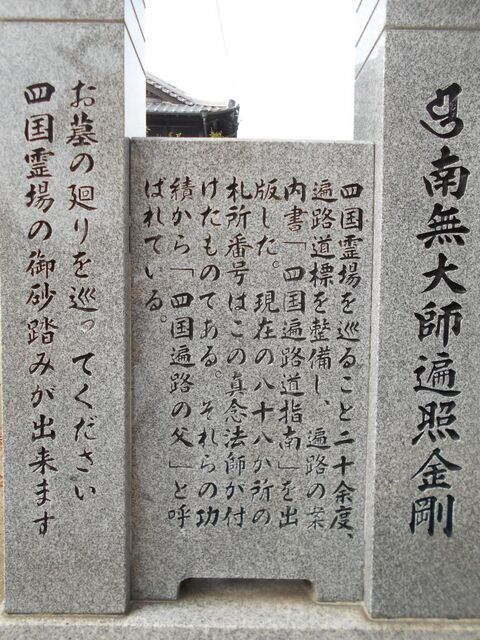 南無大師遍照金剛
四国霊場を巡ること二十余度、
遍路道標を整備し、遍路の案
内書「四国遍路道指南」を出
版した。現在の八十八か所の
札所番号はこの真念法師が付
けたものである。それらの功
績から「四国遍路の父」と呼
ばれている。
お墓の廻りを巡ってください
四国霊場の御砂踏みが出来ます